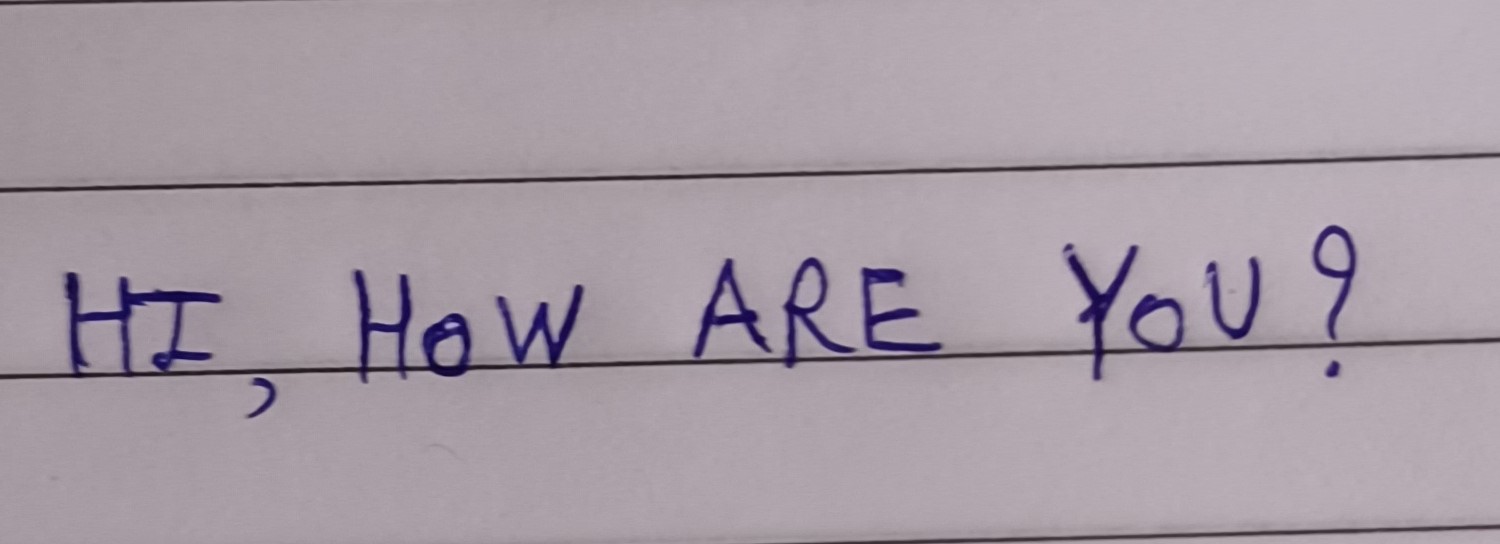 HI, HoW ARE YoU?